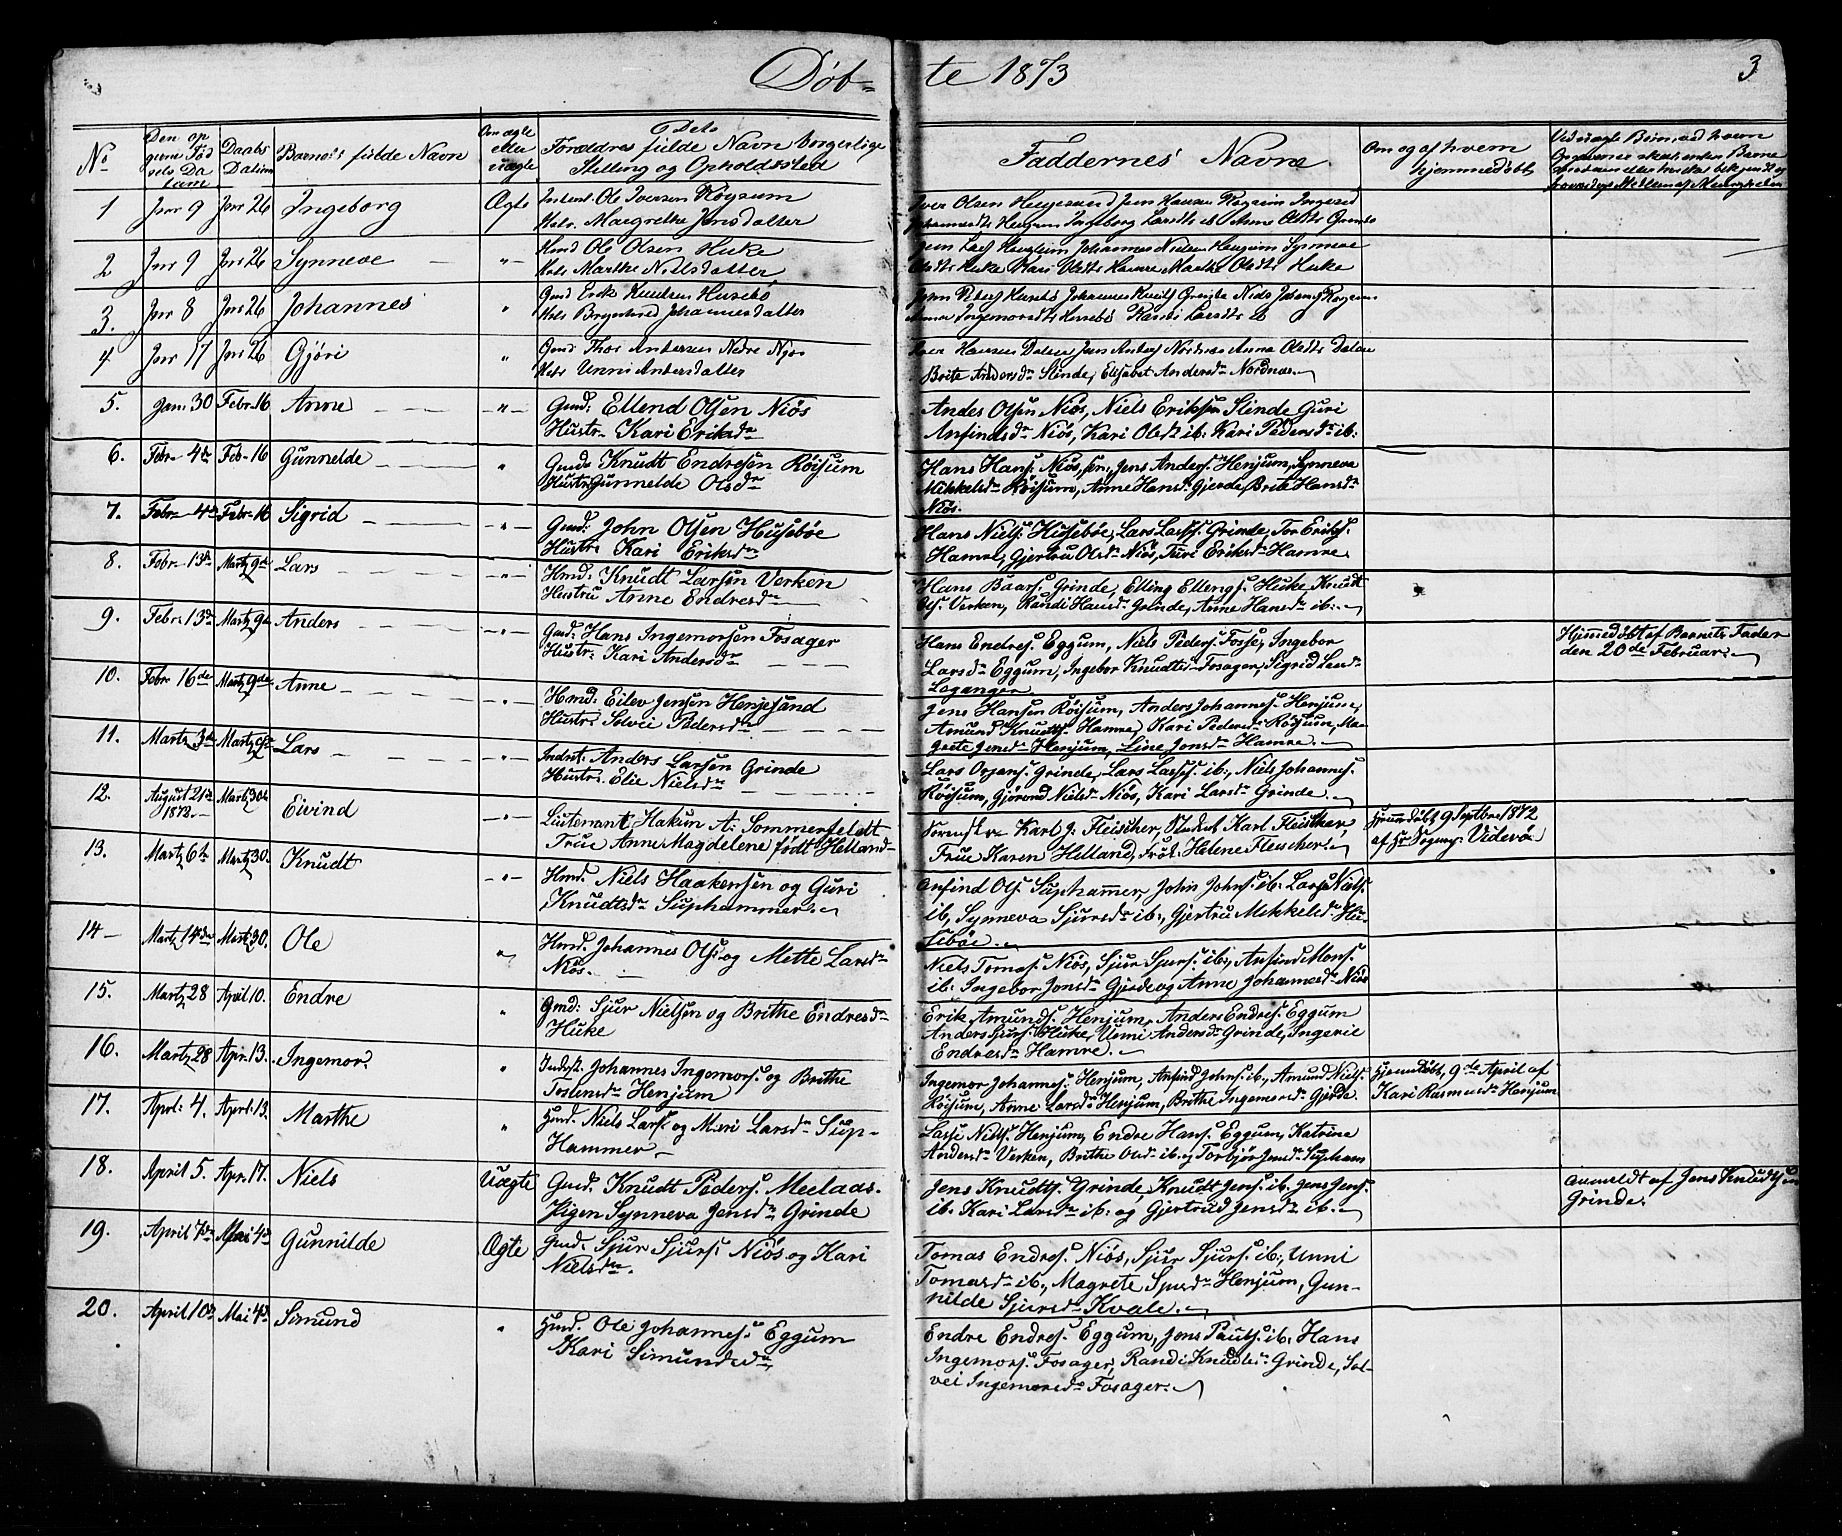 Døb-te 1873
3
No
Den op
givne Fød
sels Da
tum
Daabs
Datum
Barnets fulde Navn
Om ægte
eller
uægte
Dets
Forældres fulde Navn borgerlige
Stilling og Opholdssted
Faddernes Navne
Om og af hvem
hjemmedøbt
1 Jnr 9 Jnr 26 Ingeborg Ægte Ole Iversen Røysum
Margrethe Jensdatter
2 Jnr 9 Jnr 26 Synneve -"- Hmd Ole Olsen Huke
Marthe Nilsdatter
3. Jnr 8 Jnr 26 Johannes " Gmd Erik Knudsen Husebø
Johannesdatter
4 Jnr 17 Jnr 26 Gjøri " Gmd Thor Andersen Nedre Njøs
Unni Andersdatter
Iver Hansen Dalen Jens Anders Nordnæs Anna Oldtr Dalen
Brite Andersdr Slinde, Elisabet Andersdr Nordnæs.
5. Jan: 30 Febr. 16 Anne -"- Gmd: Ellend Olsen Niøs
Hustr. Kari Eriksdr
Andes Olsen Niøs, Niels Eriksen Slinde Guri
Anfindsdr Niøs, Kari Olsdr ib: Kari Pedersdr ib:
6. Febr 4de Feb 16 Gunnelde " Gmd: Knudt Endresen Røisum
Hustr: Gunnelde Olsdr
Hans Hans: Niøs, sen: Jens Anders: Henjum, Synneva
Mikkelsdr Røisum, Anne Hansdr Gjerde, Brite Hansdr
Niøs.
7. Febr 4de Febr 16 Sigrid -"- Gmd: John Olsen Husebøe
Hustr: Kari Eriksdr
Hans Niels: Husebøe, Lars Lasses: Grinde, Tor Eriks:
Hamre, Gjertru Olsdr Niøs, Turi Eriksdr Hamre
8. Febr 13de Martz 9de Lars -"- Hmd: Knudt Larsen Verken
Hustru Anne Endresdr
Hans Baars: Grinde, Elling Ellengs: Huke, Knudt
Ols: Verken, Randi Hansdr Grinde, Anne Hansdr ib:
9. Febr: 13de Martz 9de Anders -"- Gmd: Hans Ingemorsen Fosager
Hustr: Kari Andersdr
Hans Endres: Eggum, Niels Peders: Fosse, Ingebor
Larsdr Eggum, Ingebor Knudtsdr Fosager, Sigrid
Leganger
Hjemedøbt af Barnets Fader
den 20de Februar
10. Febr 16de Martz 9de Anne -"- Hmd: Eilev Jensen Henjesand
Hustr: Solvei Pedersdr
Jens Hansen Røisum, Anders Johannes: Henjum,
Amund Knudts: Hamre, Kari Pedersdr Røisum, Ma-
grete Jensdr Henjum, Line Jonsdr Hamre.
11. Martz 3de Martz Lars -"- Indrst: Anders Larsen Grinde
Hustr: Elie Nielsdr
Lars Orjans: Grinde, Lars Lasses: ib:, Niels Johannes:
Røisum, Gjørond Nielsdr Niøs, Kari Larsdr Grinde.
12. August 21de
1872. Martz 30de Eivind -"- Lieutenant Hakun A: Sommerfeldt
Frue Anne Magdelene født Helland
Sorenskr Karl J: Fleischer, Student Karl Fleischer,
Frue Karen Helland, Frøk: Helene Fleischer.
Hjemmdøbt 9 Septbr 1872
af Hr Sogenpr Viderøe
13. Martz 6te Martz 30. Knudt -"- Hmd: Niels Haakensen og Guri
Knudtsdr Suphammer.
Anfind Ols: Suphammer, John Johns: ib: Lars Niels:
ib, Synneva Sjursdr ib:, Gjertru Mikkelsdr Hu-
sebøe.
14- Martz 14de Martz 30. Ole " Hmd. Johannes Ols: og Mette Larsdr
Niøs.
Niels Tomas: Niøs, Sjur Sjurs: ib:, Anfind Mons:
ib: Ingebor Jonsdr Gjerde og Anne Johannesdr Niøs
15. Martz 28 April 10. Endre " Gmd: Sjur Nielsen og Brithe Endresdr
Huke
Erik Amunds: Henjum, Anders Endres: Eggum
Anders Sjurs: Huke, Unni Andersdr Grinde, Ingerie
Endresdr Hamre.
16. Martz 28 Apr. 13. Ingemor. " Indrst. Johannes Ingemors: og Brithe
Tostensdr Henjum
Ingemor Johannes: Henjum, Anfind Johns: ib:, Amund Niels:
Røisum, Anne Larsdr Henjum, Brithe Ingemorsdr Gjerde.
Hjemdøbt, 9de April af
Kari Rasmusdr Henjum
17. Aprl: 4. Aprl. 13. Marthe " Hmd. Niels Lars: og Mari Larsdr Sup-
Hammer
Lasse Niels: Henjum, Endre Hans: Eggum, Katrina
Andersdr Verken, Brithe Olsdr ib: og Torbjør Jensdr Supham
18. April 5. Apr. 17. Niels Uægte Gmd. Knudt Peders: Meelaas.
Pigen Synneva Jensdr Grinde
Jens Knudts: Grinde, Knudt Jens: ib. Jens Jens:
ib: Kari Larsdr ib: og Gjertrud Jensdr ib.
anmeldt af Jens Knudtsen
Grinde.
19. April 7de Mai 4de Gunnilde Ægte Gmd. Sjur Sjurs: Niøs og Kari
Nielsdr.
Tomas Endres: Niøs, Sjur Sjurs: ib:, Unni
Tomasdr ib:, Magrete Sjursdr Henjum, Gun-
nilde Sjursdr Kvale.
20. April 10de Mai 4de Simund " Hmd. Ole Johannes: Eggum
Kari Simundsdr
Endre Endres: Eggum, Jens Pauls: ib: Hans
Ingemors: Fosager, Randi Knudtsdr Grinde, Sol-
vei Ingemorsdr Fosager.